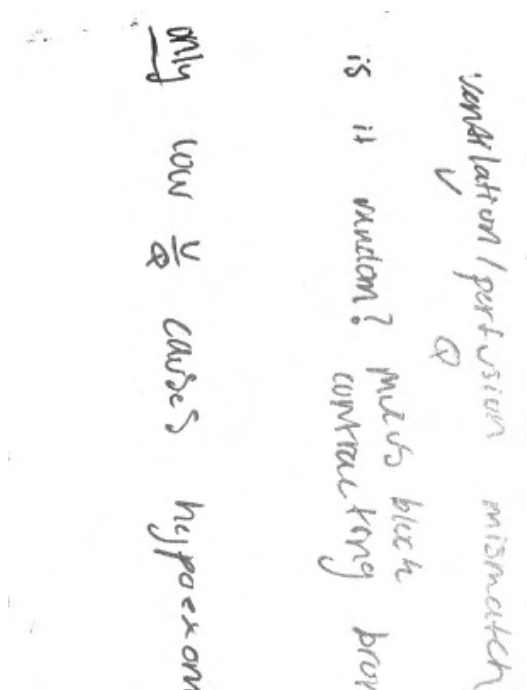 ventilation / perfusion mismatch
V Q
is it random? mucus block
contracting
only low V/Q causes